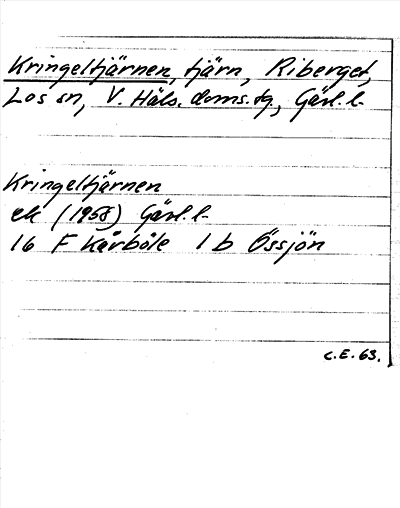 Kringeltjärnen, tjärn, Riberget,
Los sn, V. Häls. doms. tg., Gävl. l.
Kringeltjärnen
ek (1958) Gävl. l.
16 F Kårböle 1 b Össjön
C.E. 63.